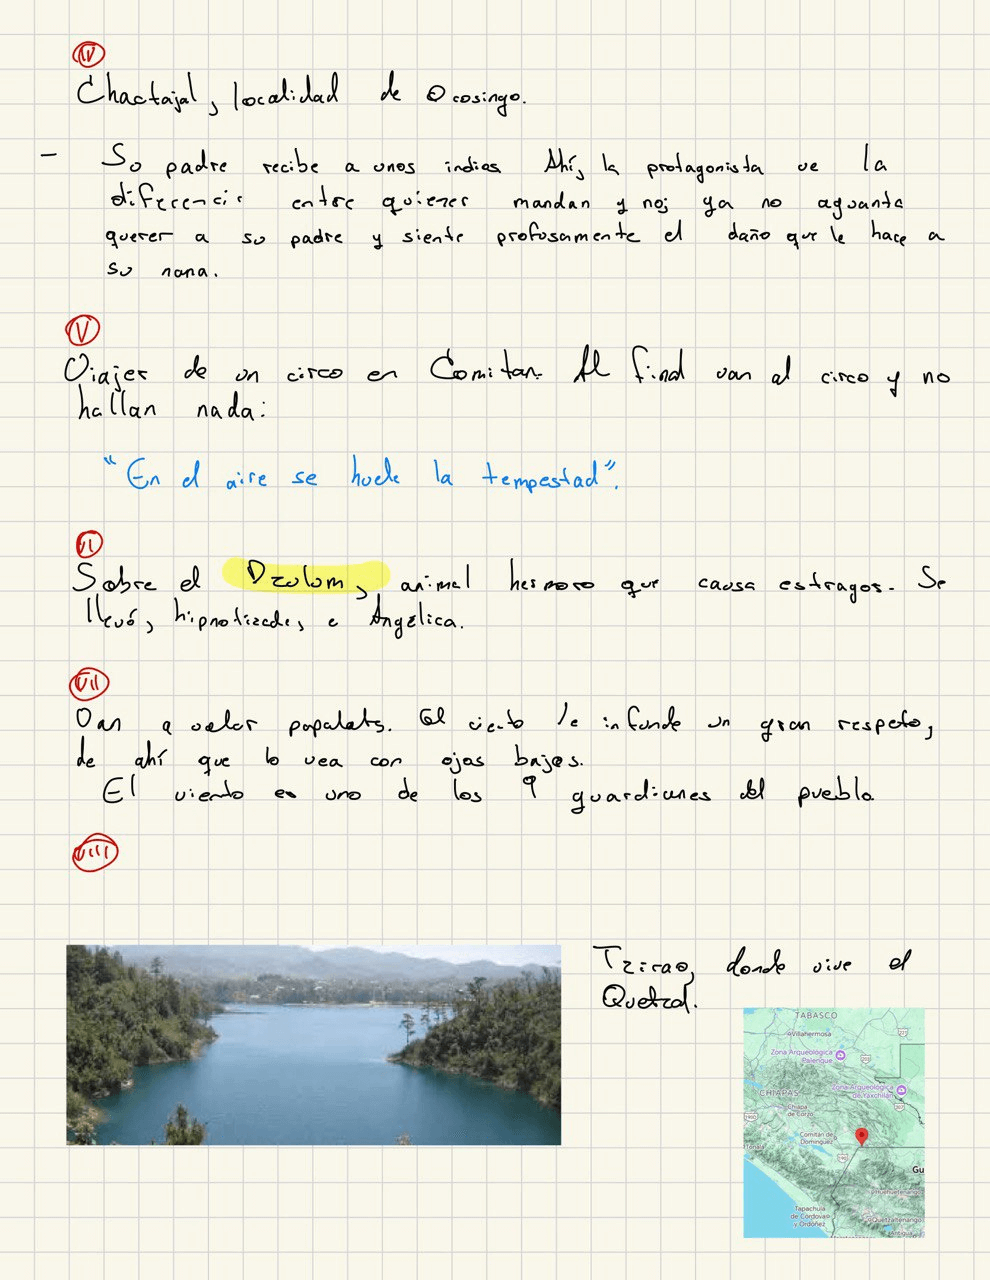 IV
Chactajal, localidad de Ocosingo.
- Su padre recibe a unos indios Ahí, la protagonista ve la
diferencia entre quienes mandan y no; ya no aguanta
querer a su padre y siente profusamente el daño que le hace a
su nana.
V
Viajes de un circo en Comitan. Al final van al circo y no
hallan nada:
"En el aire se huele la tempestad".
VI
Sobre el Dzulum, animal hermoso que causa estragos. Se
llevó, hipnotizada, a Angélica.
VII
Van a volar papalots. El viento le infunde un gran respeto,
de ahí que lo vea con ojos bajos.
El viento es uno de los 9 guardianes del pueblo
VIII
Tziscao, donde vive el
Quetzal.
TABASCO
Villahermosa
Zona Arqueológica
Palenque
203
Zona Arqueológica
de Yaxchilán
307
CHIAPAS
Chiapa
de Corzo
190D
Comitán de
Domínguez
Tonalá
190
Gu
Huehuetenango
Tapachula
de Córdova
y Ordóñez
Quetzaltenango
Antigua